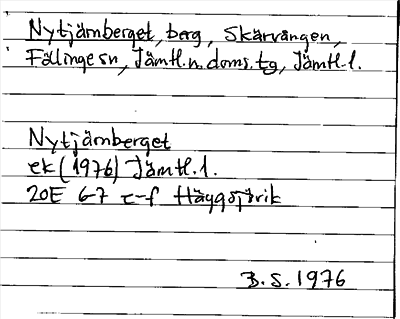 Nytjärnberget, berg, Skärvången,
Föllinge sn, Jämtl.n.doms.tg, Jämtl.l.
Nytjärnberget
ek (1976) Jämtl.l.
20E 6-7 e-f Häggsjövik
B.S. 1976